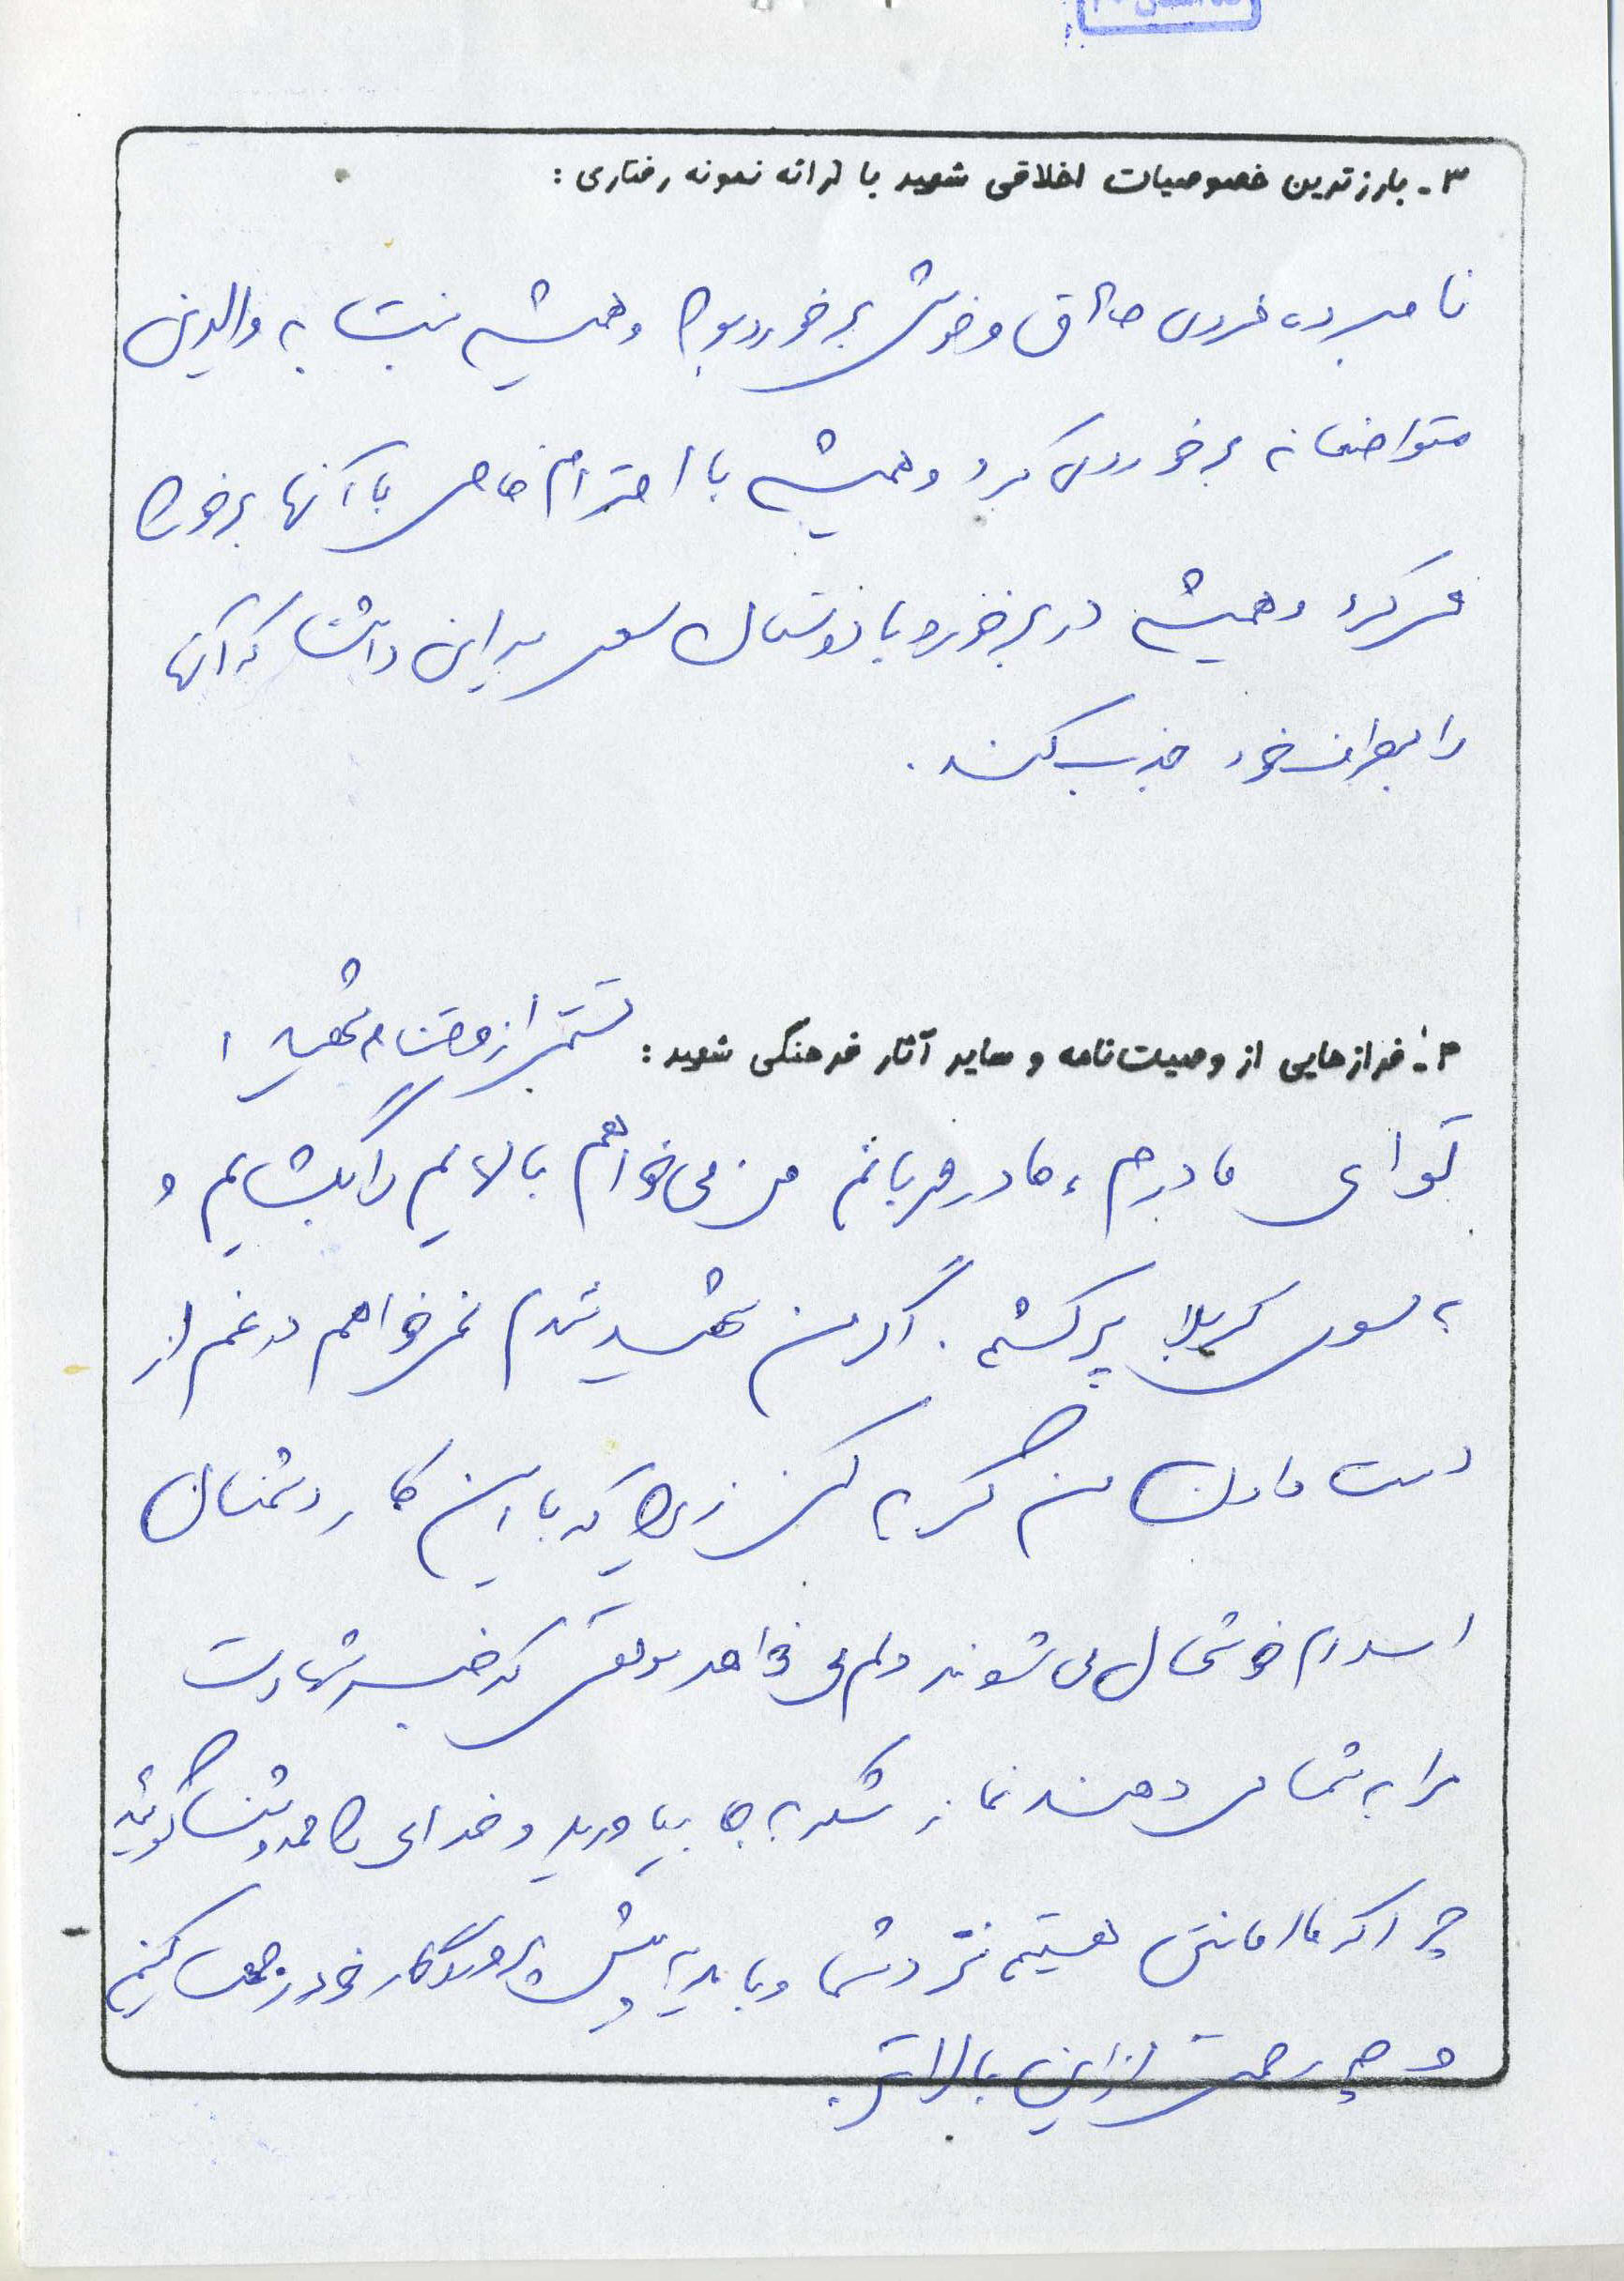 ۳- بارزترین خصوصیات اخلاقی شهید با ارائه نمونه رفتاری :
نامبرده فردی صادق و خوش برخورد بود و همیشه نسبت به والدین
متواضعانه برخورد می کرد و همیشه با احترام خاصی با آنها برخورد
می کرد و همیشه در برخورد با دوستان سعی بر این داشت که آنها
را بطرف خود جذب کند .
۴- فرازهایی از وصیت‌نامه و سایر آثار فرهنگی شهید : قسمتی از وصیتنامه شهید :
تو ای مادرم ، مادر مهربانم من می خواهم بالهایم را بگشایم و
به سوی کربلا پر کشم . اگر من شهید شدم نمی خواهم در غم از
دست دادن من گریه کنی زیرا که با این کار دشمنان
اسلام خوشحال می شوند دلم می خواهد موقعی که خبر شهادت
مرا به شما می دهند نماز شکر به جا بیاورید و خدای را حمد و ثنا گوئید
چرا که ما امانتی هستیم نزد شما و باید پیش پروردگار خود رجعت کنیم
و چه رحمتی از این بالاتر .